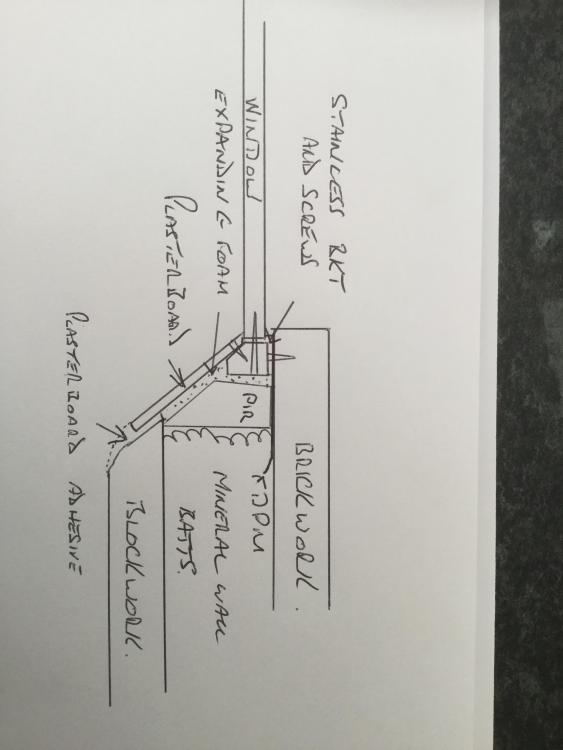 STAINLESS BKT
AND SCREWS
WINDOW
EXPANDING FOAM
PLASTERBOARD
PLASTERBOARD ADHESIVE
BRICKWORK.
DPM
PIR
MINERAL WALL
BATTS.
BLOCKWORK.